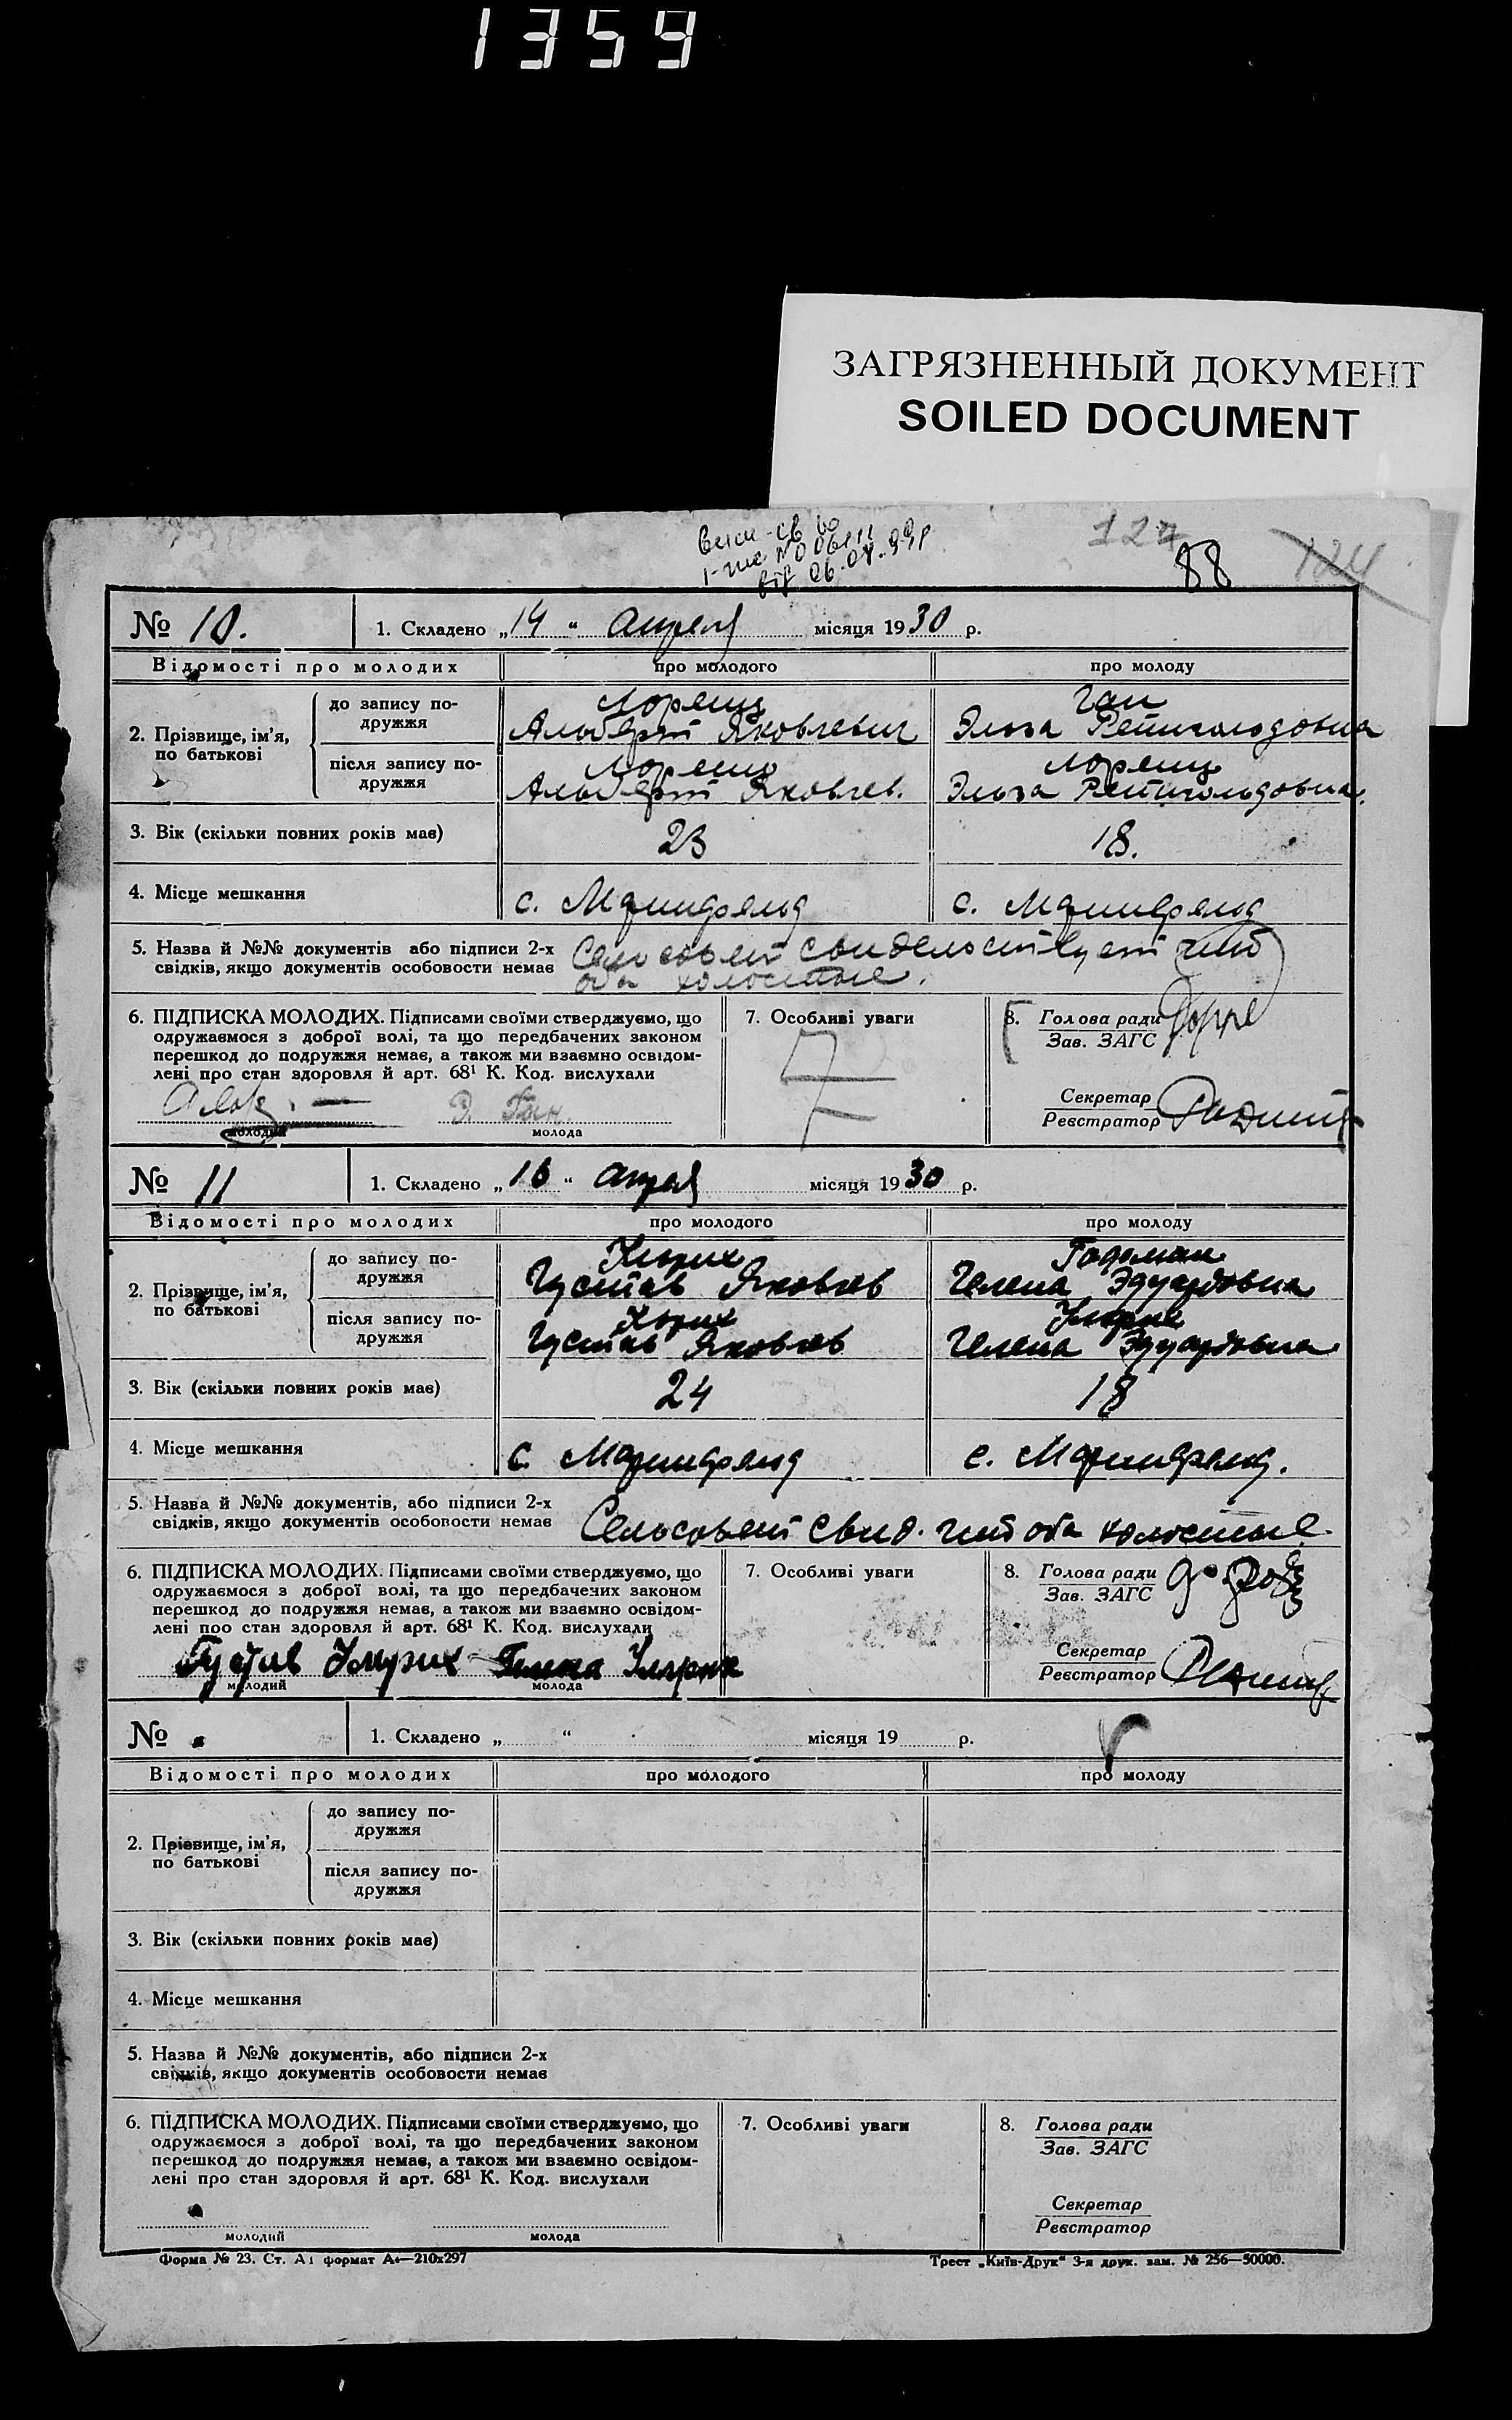 1359
ЗАГРЯЗНЕННЫЙ ДОКУМЕНТ
SOILED DOCUMENT
127
88
124
№ 10. 1. Складено „14“ апреля місяця 1930 р.
Відомості про молодих про молодого про молоду
2. Прізвище, ім'я, по батькові
до запису подружжя
Лоренц Ган
Альберт Яковлевич Эльза Рейнгольдовна
після запису подружжя
Лоренц Лоренц
Альберт Яковлев. Эльза Рейнгольдовна.
3. Вік (скільки повних років має) 23 18.
4. Місце мешкання с. Мариинфельд с. Мариинфельд
5. Назва й №№ документів або підписи 2-х Сельсовет свидельствует что
свідків, якщо документів особовости немає оба холостые.
6. ПІДПИСКА МОЛОДИХ. Підписами своїми стверджуємо, що
одружаємося з доброї волі, та що передбачених законом
перешкод до подружжя немає, а також ми взаємно освідом-
лені про стан здоровля й арт. 68¹ К. Код. вислухали
Э. Ган.
молодий молода
7. Особливі уваги
8. Голова ради
Зав. ЗАГС
Секретар
Реєстратор
№ 11 1. Складено „16“ апреля місяця 1930 р.
Відомості про молодих про молодого про молоду
2. Прізвище, ім'я, по батькові
до запису подружжя
Густав Яковлев Гелена Эдуардовна
після запису подружжя
Густав Яковлев Гелена Эдуардовна
3. Вік (скільки повних років має) 24 18
4. Місце мешкання с. Мариинфельд с. Мариинфельд.
5. Назва й №№ документів, або підписи 2-х
свідків, якщо документів особовости немає Сельсовет свид. что оба холостые.
6. ПІДПИСКА МОЛОДИХ. Підписами своїми стверджуємо, що
одружаємося з доброї волі, та що передбачених законом
перешкод до подружжя немає, а також ми взаємно освідом-
лені про стан здоровля й арт. 68¹ К. Код. вислухали
Густав
молодий молода
7. Особливі уваги
8. Голова ради
Зав. ЗАГС
Секретар
Реєстратор
№ 1. Складено „ “ місяця 19 р.
Відомості про молодих про молодого про молоду
2. Прізвище, ім'я,
по батькові
до запису по-
дружжя
після запису по-
дружжя
3. Вік (скільки повних років має)
4. Місце мешкання
5. Назва й №№ документів, або підписи 2-х
свідків, якщо документів особовости немає
6. ПІДПИСКА МОЛОДИХ. Підписами своїми стверджуємо, що
одружаємося з доброї волі, та що передбачених законом
перешкод до подружжя немає, а також ми взаємно освідом-
лені про стан здоровля й арт. 68¹ К. Код. вислухали
молодий молода
7. Особливі уваги
8. Голова ради
Зав. ЗАГС
Секретар
Реєстратор
Форма № 23. Ст. А1 формат А4—210х297 Трест „Київ-Друк“ 3-я друк. зам. № 256—50000.